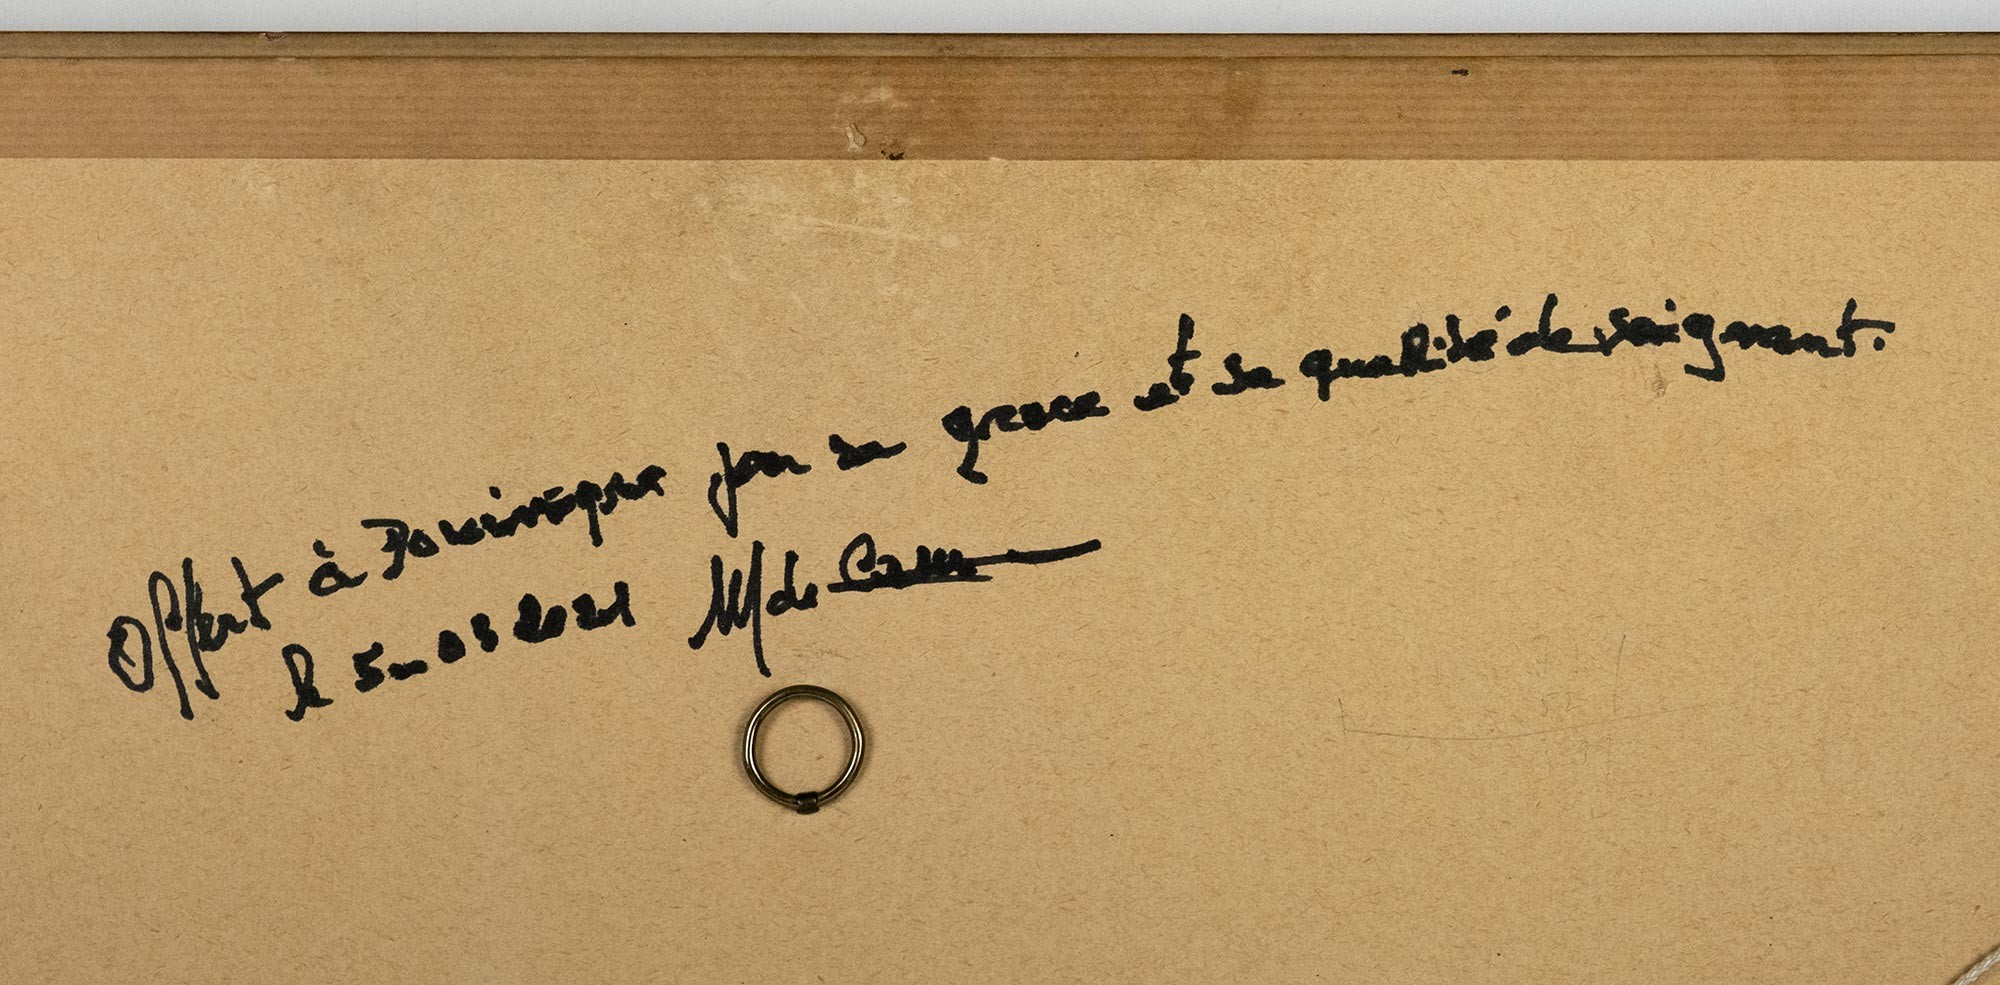 Offert à Dominique pour sa grace et sa qualité de soignant.
le 5 - 03 2021 M de
52